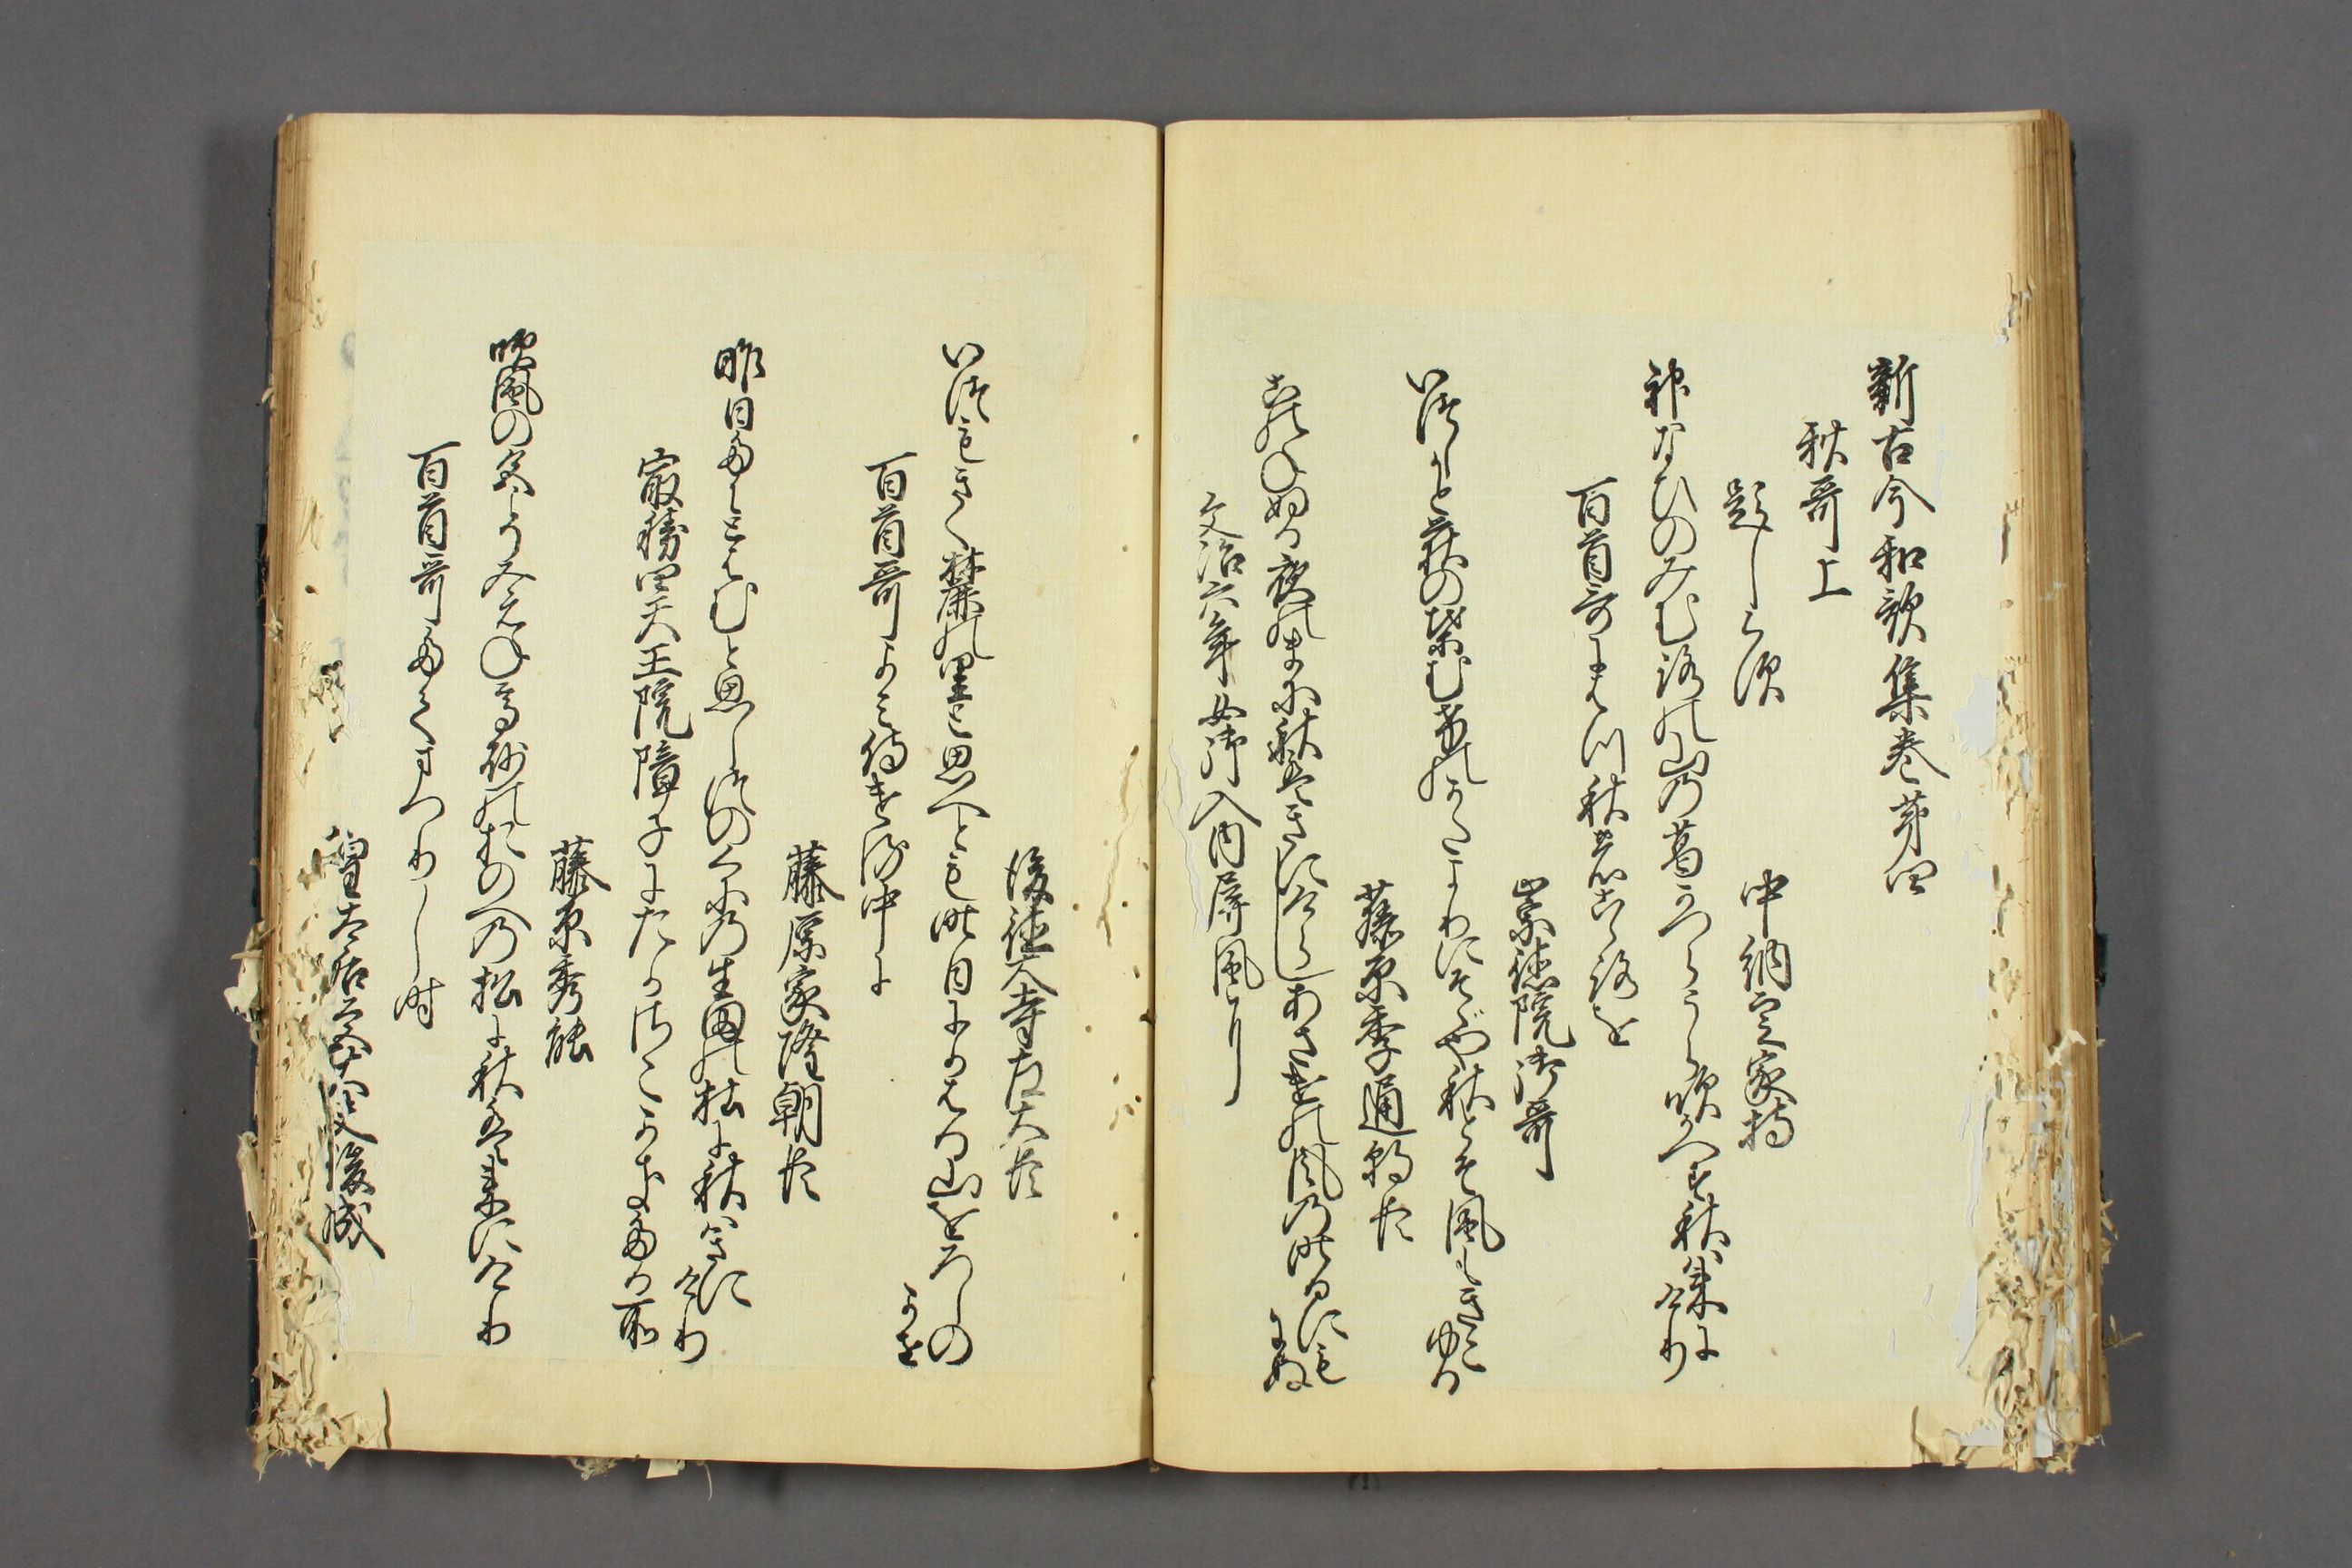 新古今和歌集巻第四
秋哥上
題しらす
中納言家持
神なひのみむろの山の葛かつらうら吹かへす秋は来にけり
百首哥にはつ秋のこゝろを
崇徳院御哥
いつしかと荻の葉むけのかたよりにそゝや秋とそ風もきこゆる
藤原季通朝臣
このねぬる夜のまに秋はきにけらしあさけの風の昨日にもにぬ
文治六年女御入内屏風に
後徳大寺左大臣
いつもきく麓の里と思へとも昨日にかはる山をろしのかせ
百首哥よみ侍ける中に
藤原家隆朝臣
昨日たにとはむと思しつのくにの生田の杜に秋はきにけり
最勝四天王院障子にたかさこかきたる所
藤原秀能
吹風の色こそみえね高砂のおのへの松に秋は来にけり
百首哥たてまつりし時
皇太后宮大夫俊成